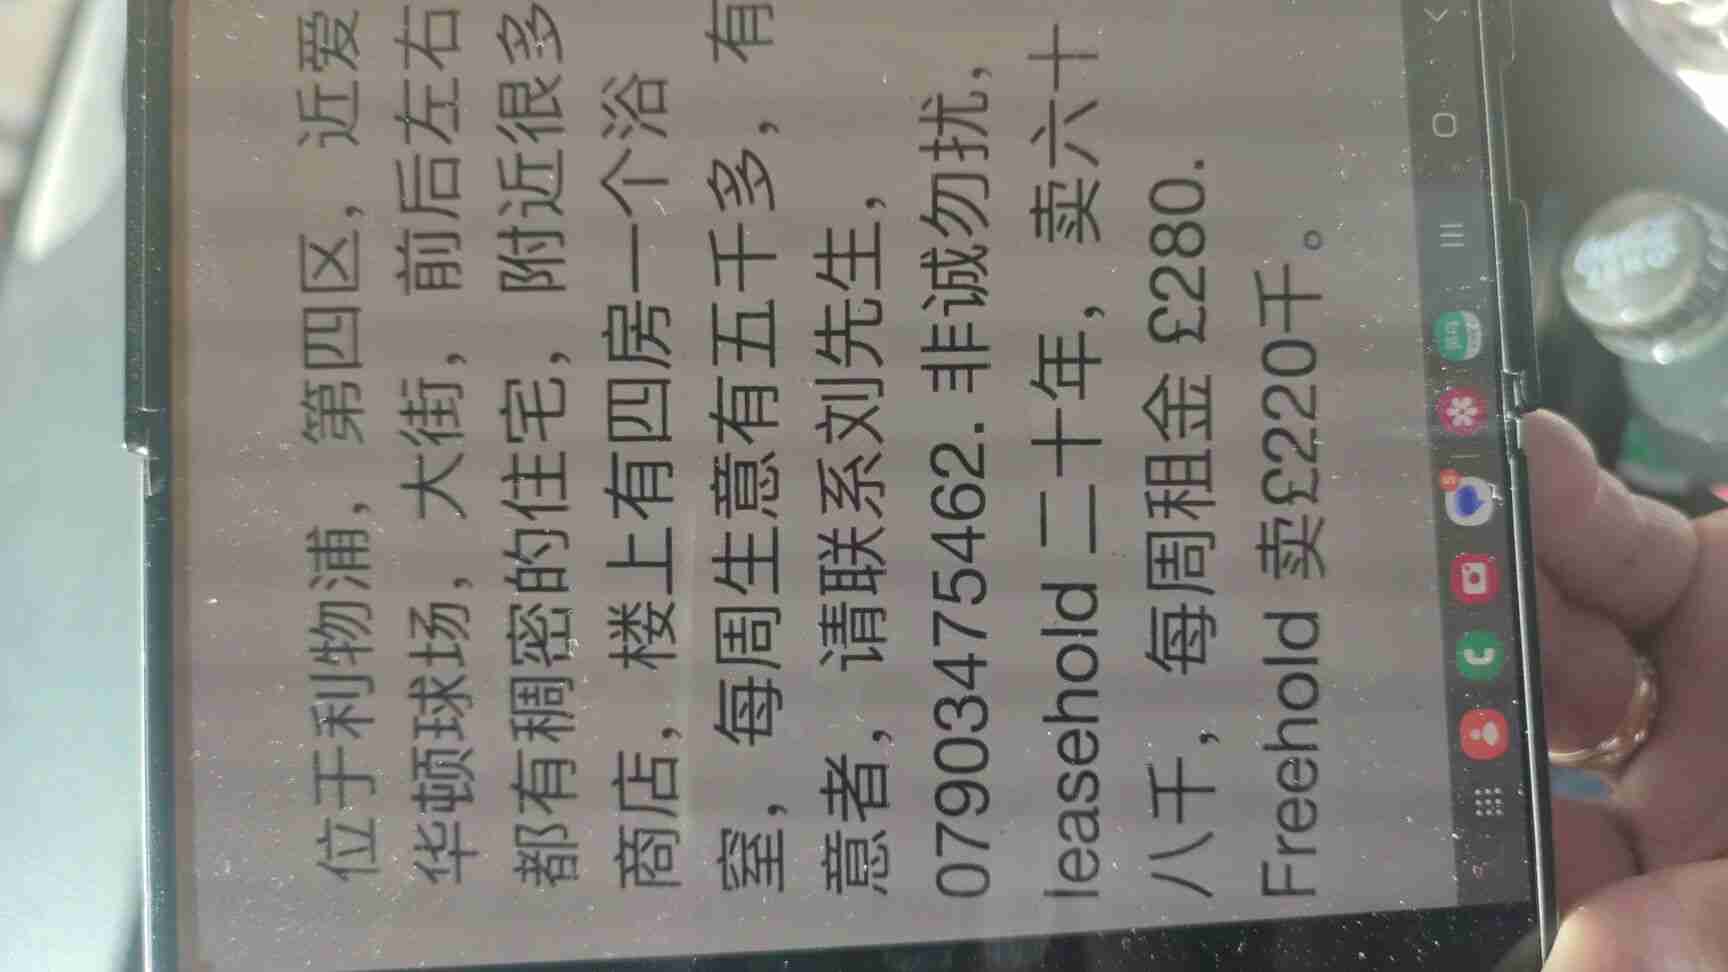 位于利物浦，第四区，近爱
华顿球场，大街，前后左右
都有稠密的住宅，附近很多
商店，楼上有四房一个浴
室，每周生意有五千多，有
意者，请联系刘先生，
07903475462. 非诚勿扰，
leasehold 二十年，卖六十
八千，每周租金 £280.
Freehold 卖£220千。